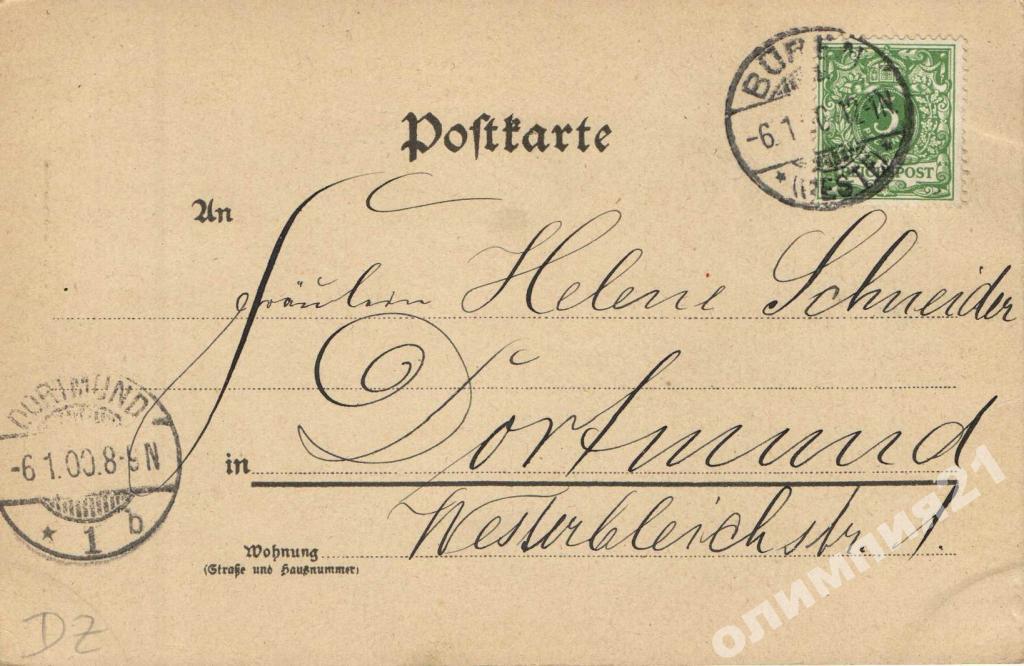 Postkarte
BÜREN
-6.1. 12-1N.
* (WESTF.) *
REICHSPOST
An
Fräulein Helene Schneider
DORTMUND
-6.1.00.8-9N
* 1 b
in Dortmund
Westerbleichstr. 1.
Wohnung
(Straße und Hausnummer)
DZ
олимпия21